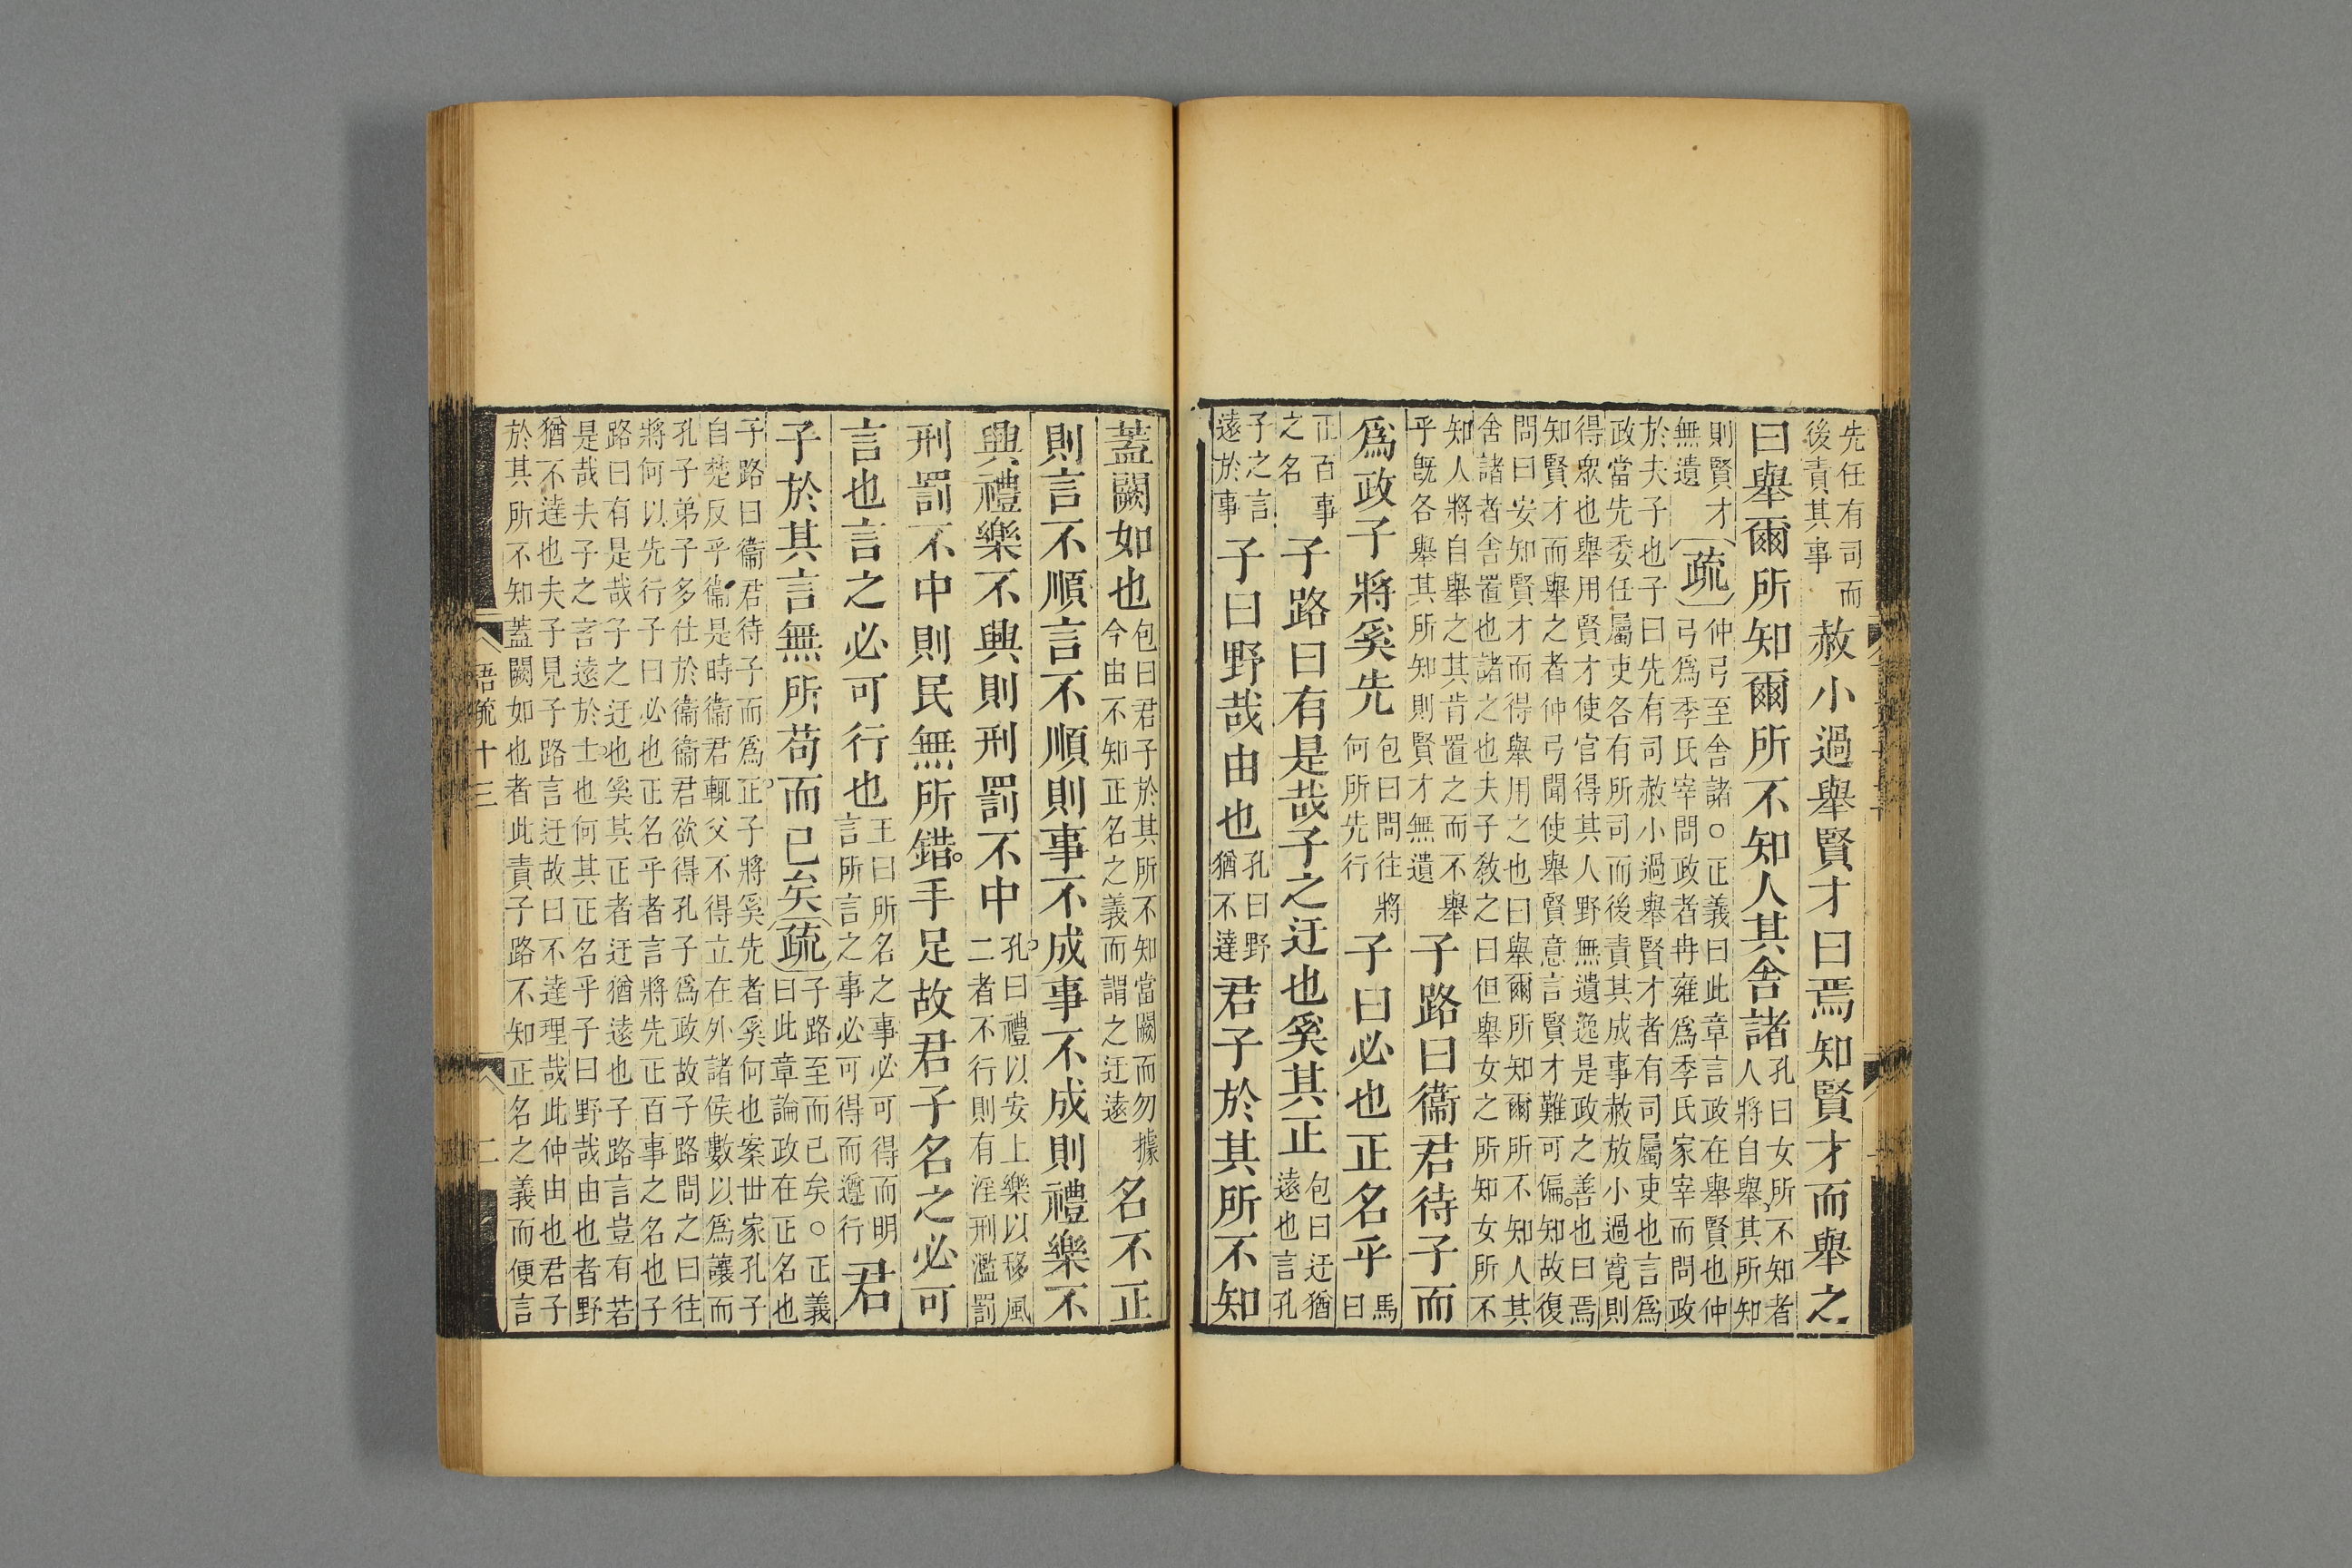 先任有司而
後責其事
赦小過舉賢才曰焉知賢才而舉之
曰舉爾所知爾所不知人其舍諸
孔曰女所不知者
人將自舉其所知
則賢才
無遺
疏
仲弓至舍諸○正義曰此章言政在舉賢也仲
弓爲季氏宰問政者冉雍爲季氏家宰而問政
於夫子也子曰先有司赦小過舉賢才者有司屬吏也言爲
政當先委任屬吏各有所司而後責其成事赦放小過寬則
得衆也舉用賢才使官得其人野無遺逸是政之善也曰焉
知賢才而舉之者仲弓聞使舉賢意言賢才難可偏知故復
問曰安知賢才而得舉用之也曰舉爾所知爾所不知人其
舍諸者舍置也諸之也夫子教之曰但舉女之所知女所不
知人將自舉之其肯置之而不舉
乎既各舉其所知則賢才無遺
子路曰衞君待子而
爲政子將奚先
包曰問往將
何所先行
子曰必也正名乎
馬
曰
正百事
之名
子路曰有是哉子之迂也奚其正
包曰迂猶
遠也言孔
子之言
遠於事
子曰野哉由也
孔曰野
猶不達
君子於其所不知
蓋闕如也
包曰君子於其所不知當闕而勿據
今由不知正名之義而謂之迂遠
名不正
則言不順言不順則事不成事不成則禮樂不
興禮樂不興則刑罰不中
孔曰禮以安上樂以移風
二者不行則有淫刑濫罰
刑罰不中則民無所錯手足故君子名之必可
言也言之必可行也
王曰所名之事必可得而明
言所言之事必可得而遵行
君
子於其言無所苟而已矣
疏
子路至而已矣○正義
曰此章論政在正名也
子路曰衞君待子而爲正子將奚先者奚何也案世家孔子
自楚反乎衞是時衞君輒父不得立在外諸侯數以爲讓而
孔子弟子多仕於衞衞君欲得孔子爲政故子路問之曰往
將何以先行子曰必也正名乎者言將先正百事之名也子
路曰有是哉子之迂也奚其正者迂猶遠也子路言豈有若
是哉夫子之言遠於士也何其正名乎子曰野哉由也者野
猶不達也夫子見子路言迂故曰不達理哉此仲由也君子
於其所不知蓋闕如也者此責子路不知正名之義而便言
語疏十三
二